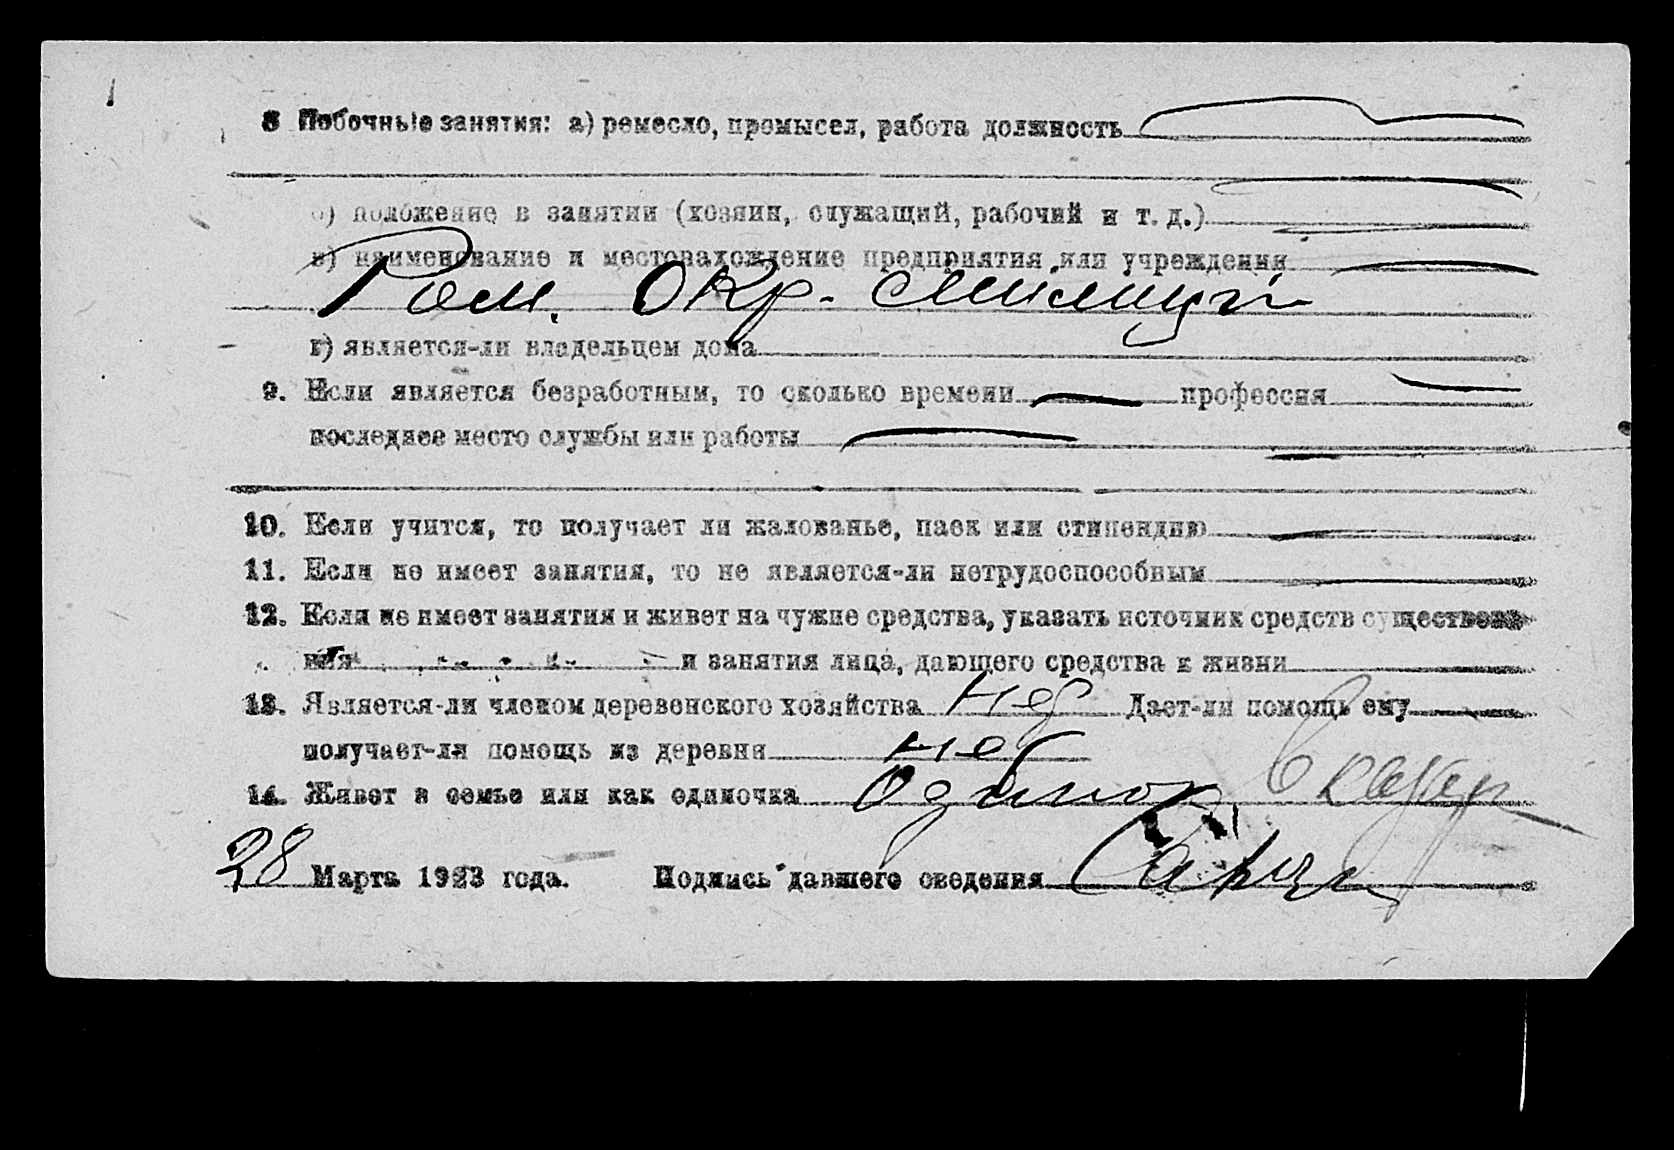 8 Побочные занятия: а) ремесло, промысел, работа должность
б) положение в занятии (хозяин, служащий, рабочий и т. д.)
в) наименование и местонахождение предприятия или учреждения
Рам. Окр. Милиции
г) является-ли владельцем дома
9. Если является безработным, то сколько времени профессия
последнее место службы или работы
10. Если учится, то получает ли жалованье, паек или стипендию
11. Если не имеет занятия, то не является-ли нетрудоспособным
12. Если не имеет занятия и живет на чужие средства, указать источник средств существова-
ния и занятия лица, дающего средства к жизни
13. Является-ли членом деревенского хозяйства Нет Дает-ли помощь ему
получает-ли помощь из деревни нет
14. Живет в семье или как одиночка Одинок.
28 Марта 1923 года. Подпись давшего сведения